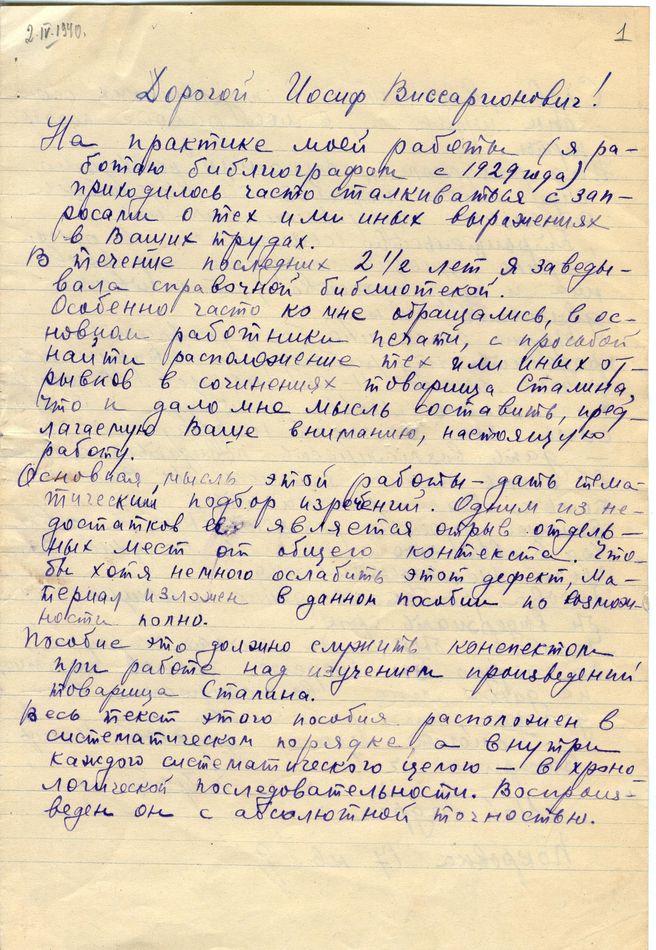 2.IV.1940.
1
Дорогой Иосиф Виссарионович!
На практике моей работы (я ра-
ботаю библиографом с 1929 года)
приходилось часто сталкиваться с зап-
росами о тех или иных выражениях
в Ваших трудах.
В течение последних 2 1/2 лет я заведы-
вала справочной библиотекой.
Особенно часто ко мне обращались, в ос-
новном работники печати, с просьбой
найти расположение тех или иных от-
рывков в сочинениях товарища Сталина,
что и дало мне мысль составить, пред-
лагаемую Ваше вниманию, настоящую
работу.
Основная мысль этой работы – дать тема-
тический подбор изречений. Одним из не-
достатков её является отрыв отдель-
ных мест от общего контекста. Что-
бы хотя немного ослабить этот дефект, ма-
териал изложен в данном пособии по возмож-
ности полно.
Пособие это должно служить конспектом
при работе над изучением произведений
товарища Сталина.
Весь текст этого пособия расположен в
систематическом порядке, а внутри
каждого систематического целого – в хроно-
логической последовательности. Воспроиз-
веден он с абсолютной точностью.